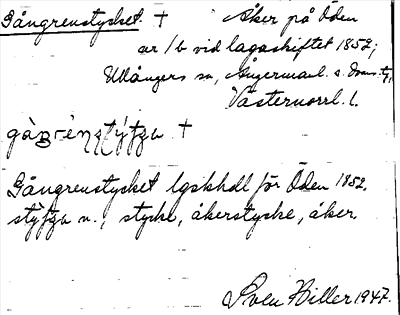 Gångrenstycket. † Åker på Öden
ar 1b vid lagaskiftet 1852;
Ullångers sn, Ångermanl. s. doms.
Västernorrl. l.
†
Gångrenstycket lgskhdl för Öden 1852.
n., stycke, åkerstycke, åker
Sven Hiller 1947.